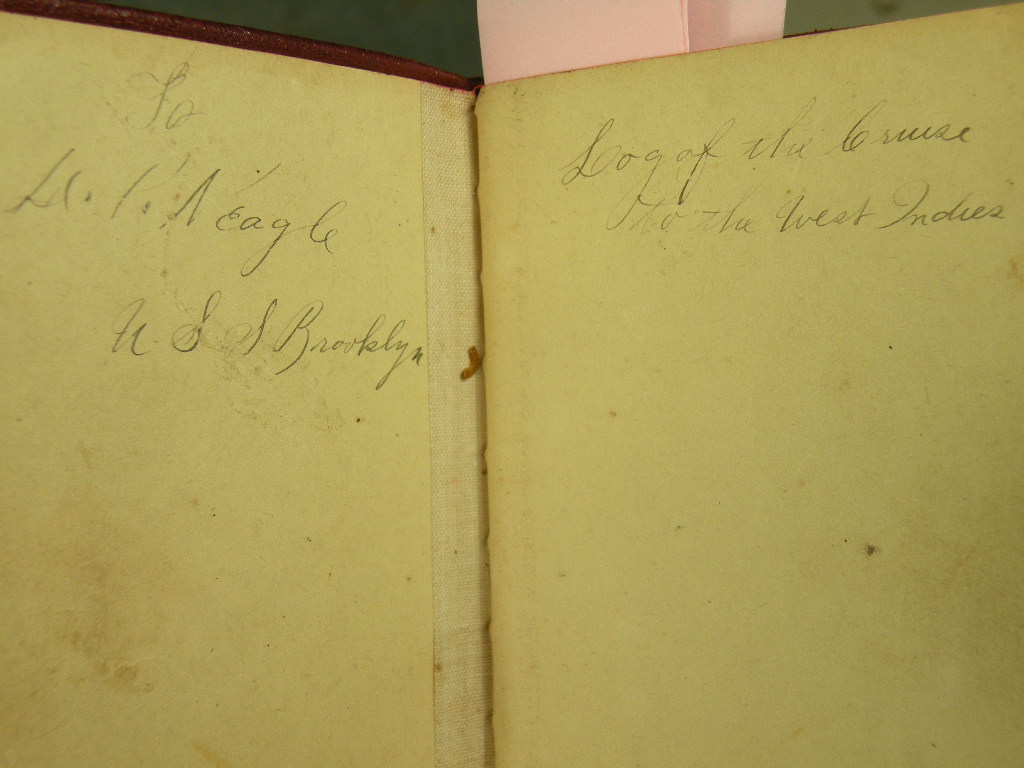 To
Eagle
U. S S Brooklyn
Log of the Cruise
to the West Indies